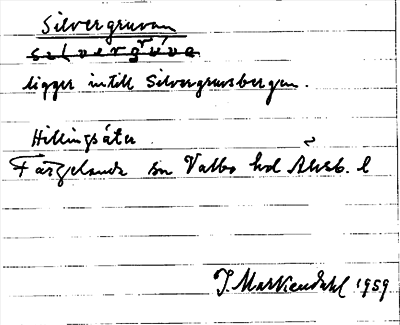 Silvergruvan
silvergruva
ligger intill Silvergruvsbergen.
Hillingsäter
Färgelanda sn Valbo hd Älvsb. l
J. Markiendahl 1959